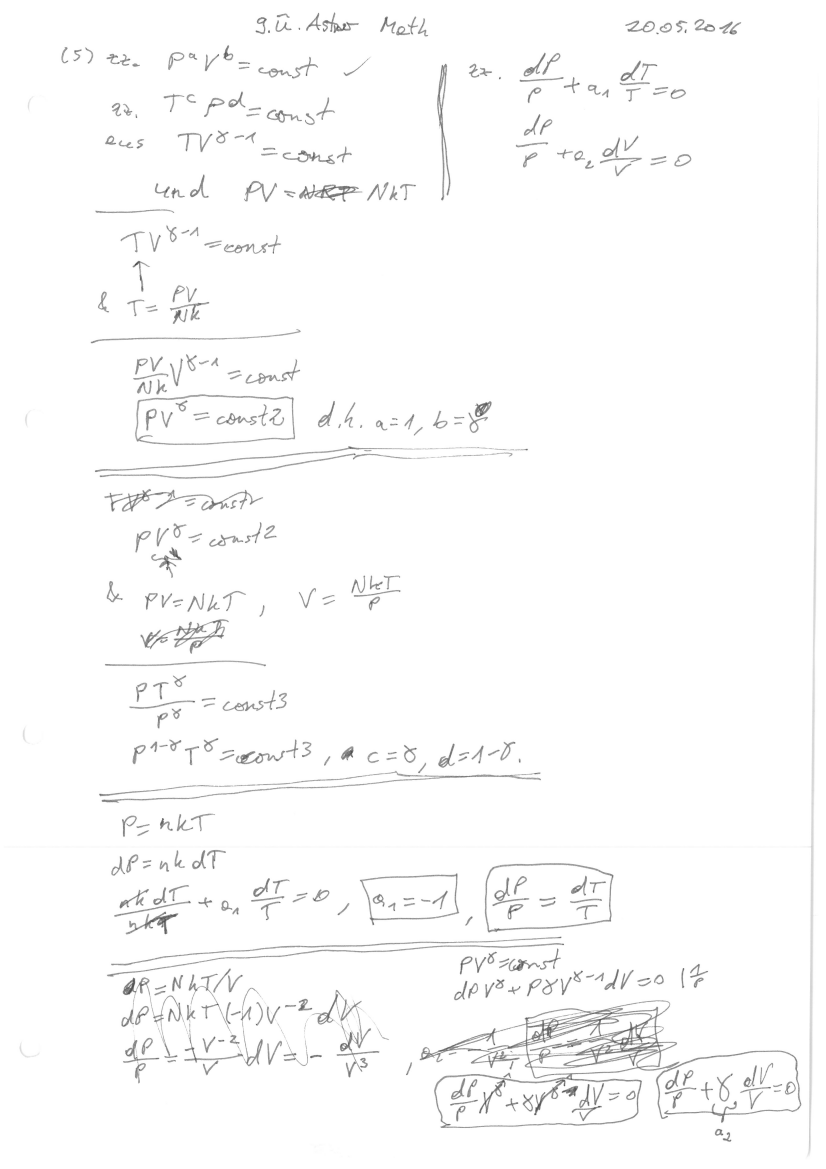 9. Ü. Astro Math 20.05.2016
(5) zz. P^a V^b = const ✓
zz. T^c P^d = const
aus TV^{γ-1} = const
und PV = NkT
zz. dP/P + a_1 dT/T = 0
dP/P + a_2 dV/V = 0
TV^{γ-1} = const
↑
& T = PV/Nk
PV/Nk V^{γ-1} = const
PV^γ = const2 d.h. a=1, b=γ
PV^γ = const2
& PV = NkT, V = NkT/P
PT^γ/P^γ = const3
P^{1-γ} T^γ = const3, c=γ, d=1-γ.
P = nkT
dP = nk dT
nk dT/nkT + a_1 dT/T = 0, a_1 = -1, dP/P = dT/T
P = NkT/V
dP = NkT (-1) V^{-2} dV
dP/P = -V^{-2}/V dV = - dV/V^3,
PV^γ = const
dP V^γ + PγV^{γ-1} dV = 0 | 1/P
dP/P V^γ + γV^γ dV/V = 0
dP/P + γ dV/V = 0
a_2